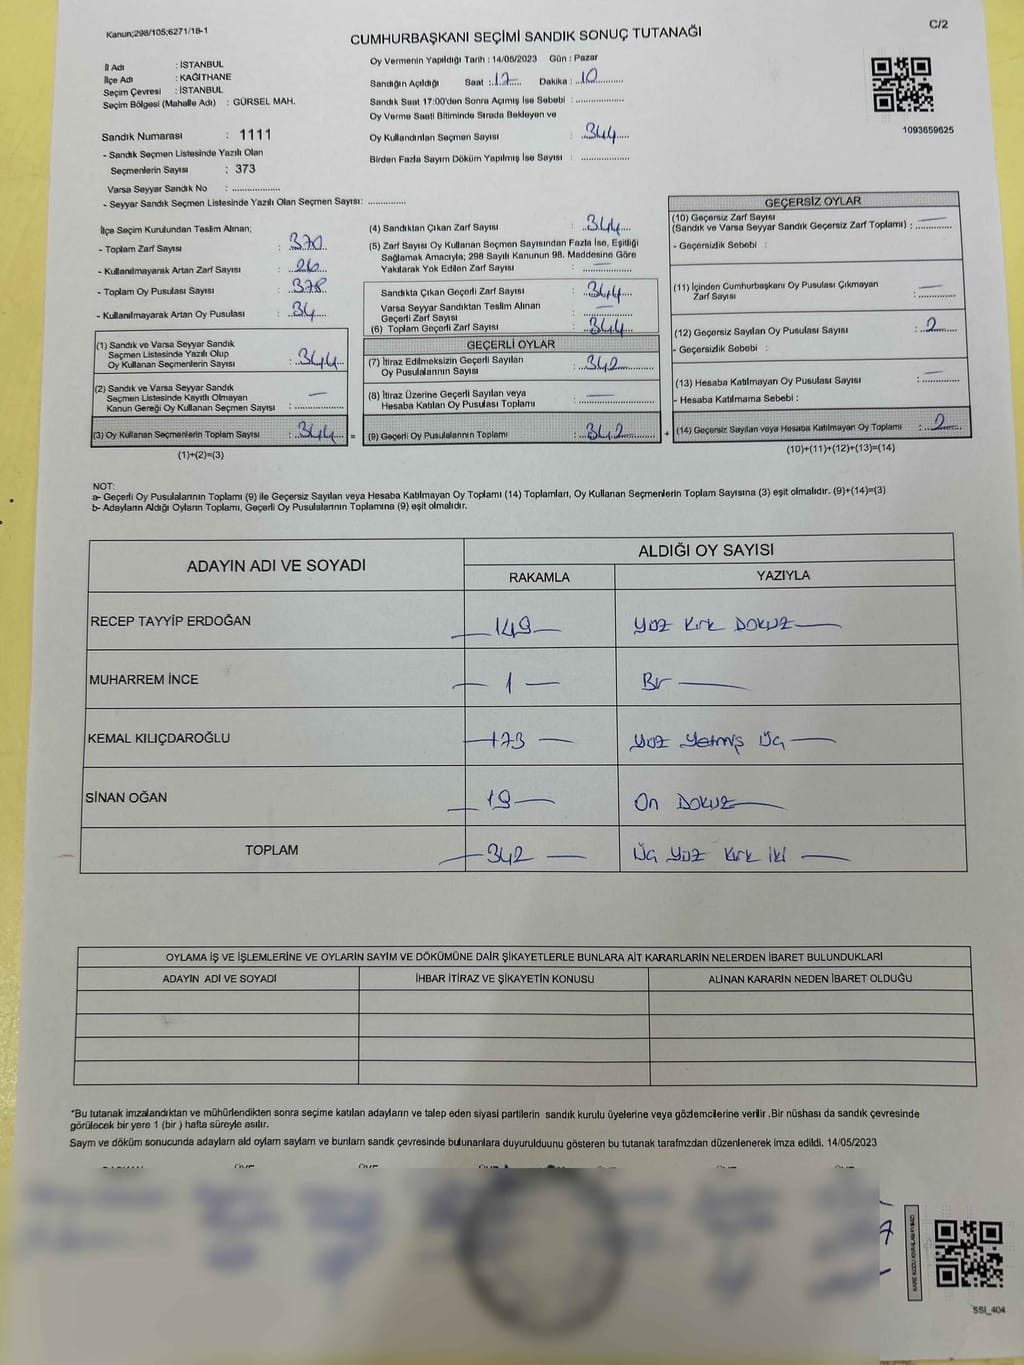 Kanun;298/105;6271/18-1
C/2
CUMHURBAŞKANI SEÇİMİ SANDIK SONUÇ TUTANAĞI
İl Adı : İSTANBUL
İlçe Adı : KAĞITHANE
Seçim Çevresi : İSTANBUL
Seçim Bölgesi (Mahalle Adı) : GÜRSEL MAH.
Sandık Numarası : 1111
- Sandık Seçmen Listesinde Yazılı Olan
Seçmenlerin Sayısı : 373
Varsa Seyyar Sandık No : ................
- Seyyar Sandık Seçmen Listesinde Yazılı Olan Seçmen Sayısı: .............
Oy Vermenin Yapıldığı Tarih : 14/05/2023 Gün : Pazar
Sandığın Açıldığı Saat : 17 Dakika : 10
Sandık Saat 17:00'den Sonra Açımış İse Sebebi : ................
Oy Verme Saati Bitiminde Sırada Bekleyen ve
Oy Kullandırılan Seçmen Sayısı : 344
Birden Fazla Sayım Döküm Yapılmış İse Sayısı : ................
1093659625
İlçe Seçim Kurulundan Teslim Alınan;
- Toplam Zarf Sayısı : 370
- Kullanılmayarak Artan Zarf Sayısı : 26
- Toplam Oy Pusulası Sayısı : 378
- Kullanılmayarak Artan Oy Pusulası : 34
(1) Sandık ve Varsa Seyyar Sandık
Seçmen Listesinde Yazılı Olup
Oy Kullanan Seçmenlerin Sayısı : 344
(2) Sandık ve Varsa Seyyar Sandık
Seçmen Listesinde Kayıtlı Olmayan
Kanun Gereği Oy Kullanan Seçmen Sayısı : —
(3) Oy Kullanan Seçmenlerin Toplam Sayısı : 344 =
(1)+(2)=(3)
(4) Sandıktan Çıkan Zarf Sayısı : 344
(5) Zarf Sayısı Oy Kullanan Seçmen Sayısından Fazla İse, Eşitliği
Sağlamak Amacıyla; 298 Sayılı Kanunun 98. Maddesine Göre
Yakılarak Yok Edilen Zarf Sayısı : —
Sandıkta Çıkan Geçerli Zarf Sayısı : 344
Varsa Seyyar Sandıktan Teslim Alınan
Geçerli Zarf Sayısı : —
(6) Toplam Geçerli Zarf Sayısı : 344
GEÇERLİ OYLAR
(7) İtiraz Edilmeksizin Geçerli Sayılan
Oy Pusulalarının Sayısı : 342
(8) İtiraz Üzerine Geçerli Sayılan veya
Hesaba Katılan Oy Pusulası Toplamı : —
(9) Geçerli Oy Pusulalarının Toplamı : 342 +
GEÇERSİZ OYLAR
(10) Geçersiz Zarf Sayısı
(Sandık ve Varsa Seyyar Sandık Geçersiz Zarf Toplamı) : —
- Geçersizlik Sebebi :
(11) İçinden Cumhurbaşkanı Oy Pusulası Çıkmayan
Zarf Sayısı : —
(12) Geçersiz Sayılan Oy Pusulası Sayısı : 2
- Geçersizlik Sebebi :
(13) Hesaba Katılmayan Oy Pusulası Sayısı : —
- Hesaba Katılmama Sebebi :
(14) Geçersiz Sayılan veya Hesaba Katılmayan Oy Toplamı : 2
(10)+(11)+(12)+(13)=(14)
NOT:
a- Geçerli Oy Pusulalarının Toplamı (9) ile Geçersiz Sayılan veya Hesaba Katılmayan Oy Toplamı (14) Toplamları, Oy Kullanan Seçmenlerin Toplam Sayısına (3) eşit olmalıdır. (9)+(14)=(3)
b- Adayların Aldığı Oyların Toplamı, Geçerli Oy Pusulalarının Toplamına (9) eşit olmalıdır.
ADAYIN ADI VE SOYADI ALDIĞI OY SAYISI
RAKAMLA YAZIYLA
RECEP TAYYİP ERDOĞAN 149 YÜZ Kırk DOKUZ
MUHARREM İNCE 1 Bir
KEMAL KILIÇDAROĞLU 173 YÜZ Yetmiş Üç
SİNAN OĞAN 19 On DOKUZ
TOPLAM 342 Üç YÜZ Kırk İki
OYLAMA İŞ VE İŞLEMLERİNE VE OYLARIN SAYIM VE DÖKÜMÜNE DAİR ŞİKAYETLERLE BUNLARA AİT KARARLARIN NELERDEN İBARET BULUNDUKLARI
ADAYIN ADI VE SOYADI İHBAR İTİRAZ VE ŞİKAYETİN KONUSU ALINAN KARARIN NEDEN İBARET OLDUĞU
*Bu tutanak imzalandıktan ve mühürlendikten sonra seçime katılan adayların ve talep eden siyasi partilerin sandık kurulu üyelerine veya gözlemcilerine verilir .Bir nüshası da sandık çevresinde
görülecek bir yere 1 (bir ) hafta süreyle asılır.
Sayım ve döküm sonucunda adayların ald oyların sayların ve bunların sandk çevresinde bulunanlara duyurulduunu gösteren bu tutanak tarafmzdan düzenlenerek imza edildi. 14/05/2023
SSI_404